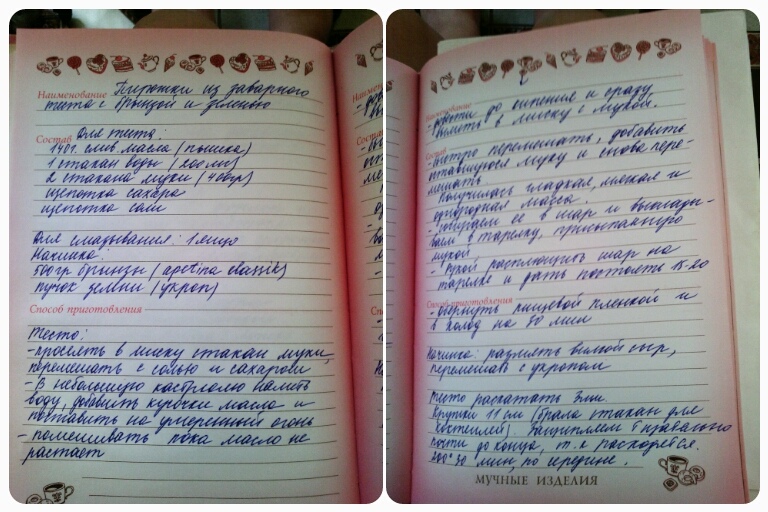 Наименование Пирожки из заварного
теста с брынзой и зеленью
Состав Для теста:
140г. слив. масла (пышка)
1 стакан воды (200мл)
2 стакана муки (400гр)
щепотка сахара
щепотка соли
Для смазывания: 1 яйцо
Начинка:
500гр брынзы (apetina classik)
пучок зелени (укроп)
Способ приготовления
Тесто:
- просеять в миску стакан муки,
перемешать с солью и сахаром
- В небольшую кастрюлю налить
воду, добавить кусочки масла и
поставить на умеренный огонь
- помешивать пока масло не
растает
2
Наименование
- довести до кипения и сразу
вылить в миску с мукой.
Состав
- быстро перемешать, добавить
оставшуюся муку и снова пере-
мешать
Получилась гладкая, мягкая и
однородная масса.
- собираем ее в шар и выклады-
ваем в тарелку, присыпанную
мукой
- Рукой расплющить шар на
тарелке и дать постоять 15-20
Способ приготовления
- обернуть пищевой пленкой и
в холод на 30 мин
Начинка: размять вилкой сыр,
перемешать с укропом
Тесто раскатать 3мм.
Кружки 11 см (брала стакан для
коктейлей) защипляем
почти до конца, т.к расходятся.
200° 30 мин, по середине.
МУЧНЫЕ ИЗДЕЛИЯ